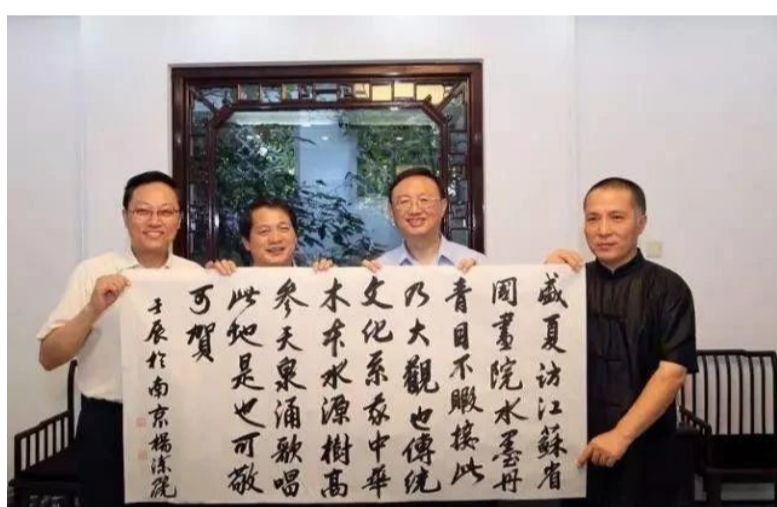 盛夏访江蘇省
國畫院水墨丹
青目不暇接此
乃大觀也傳統
文化系我中華
木本水源樹高
參天泉涌歌唱
此地是也可敬
可賀
壬辰於南京楊潔篪